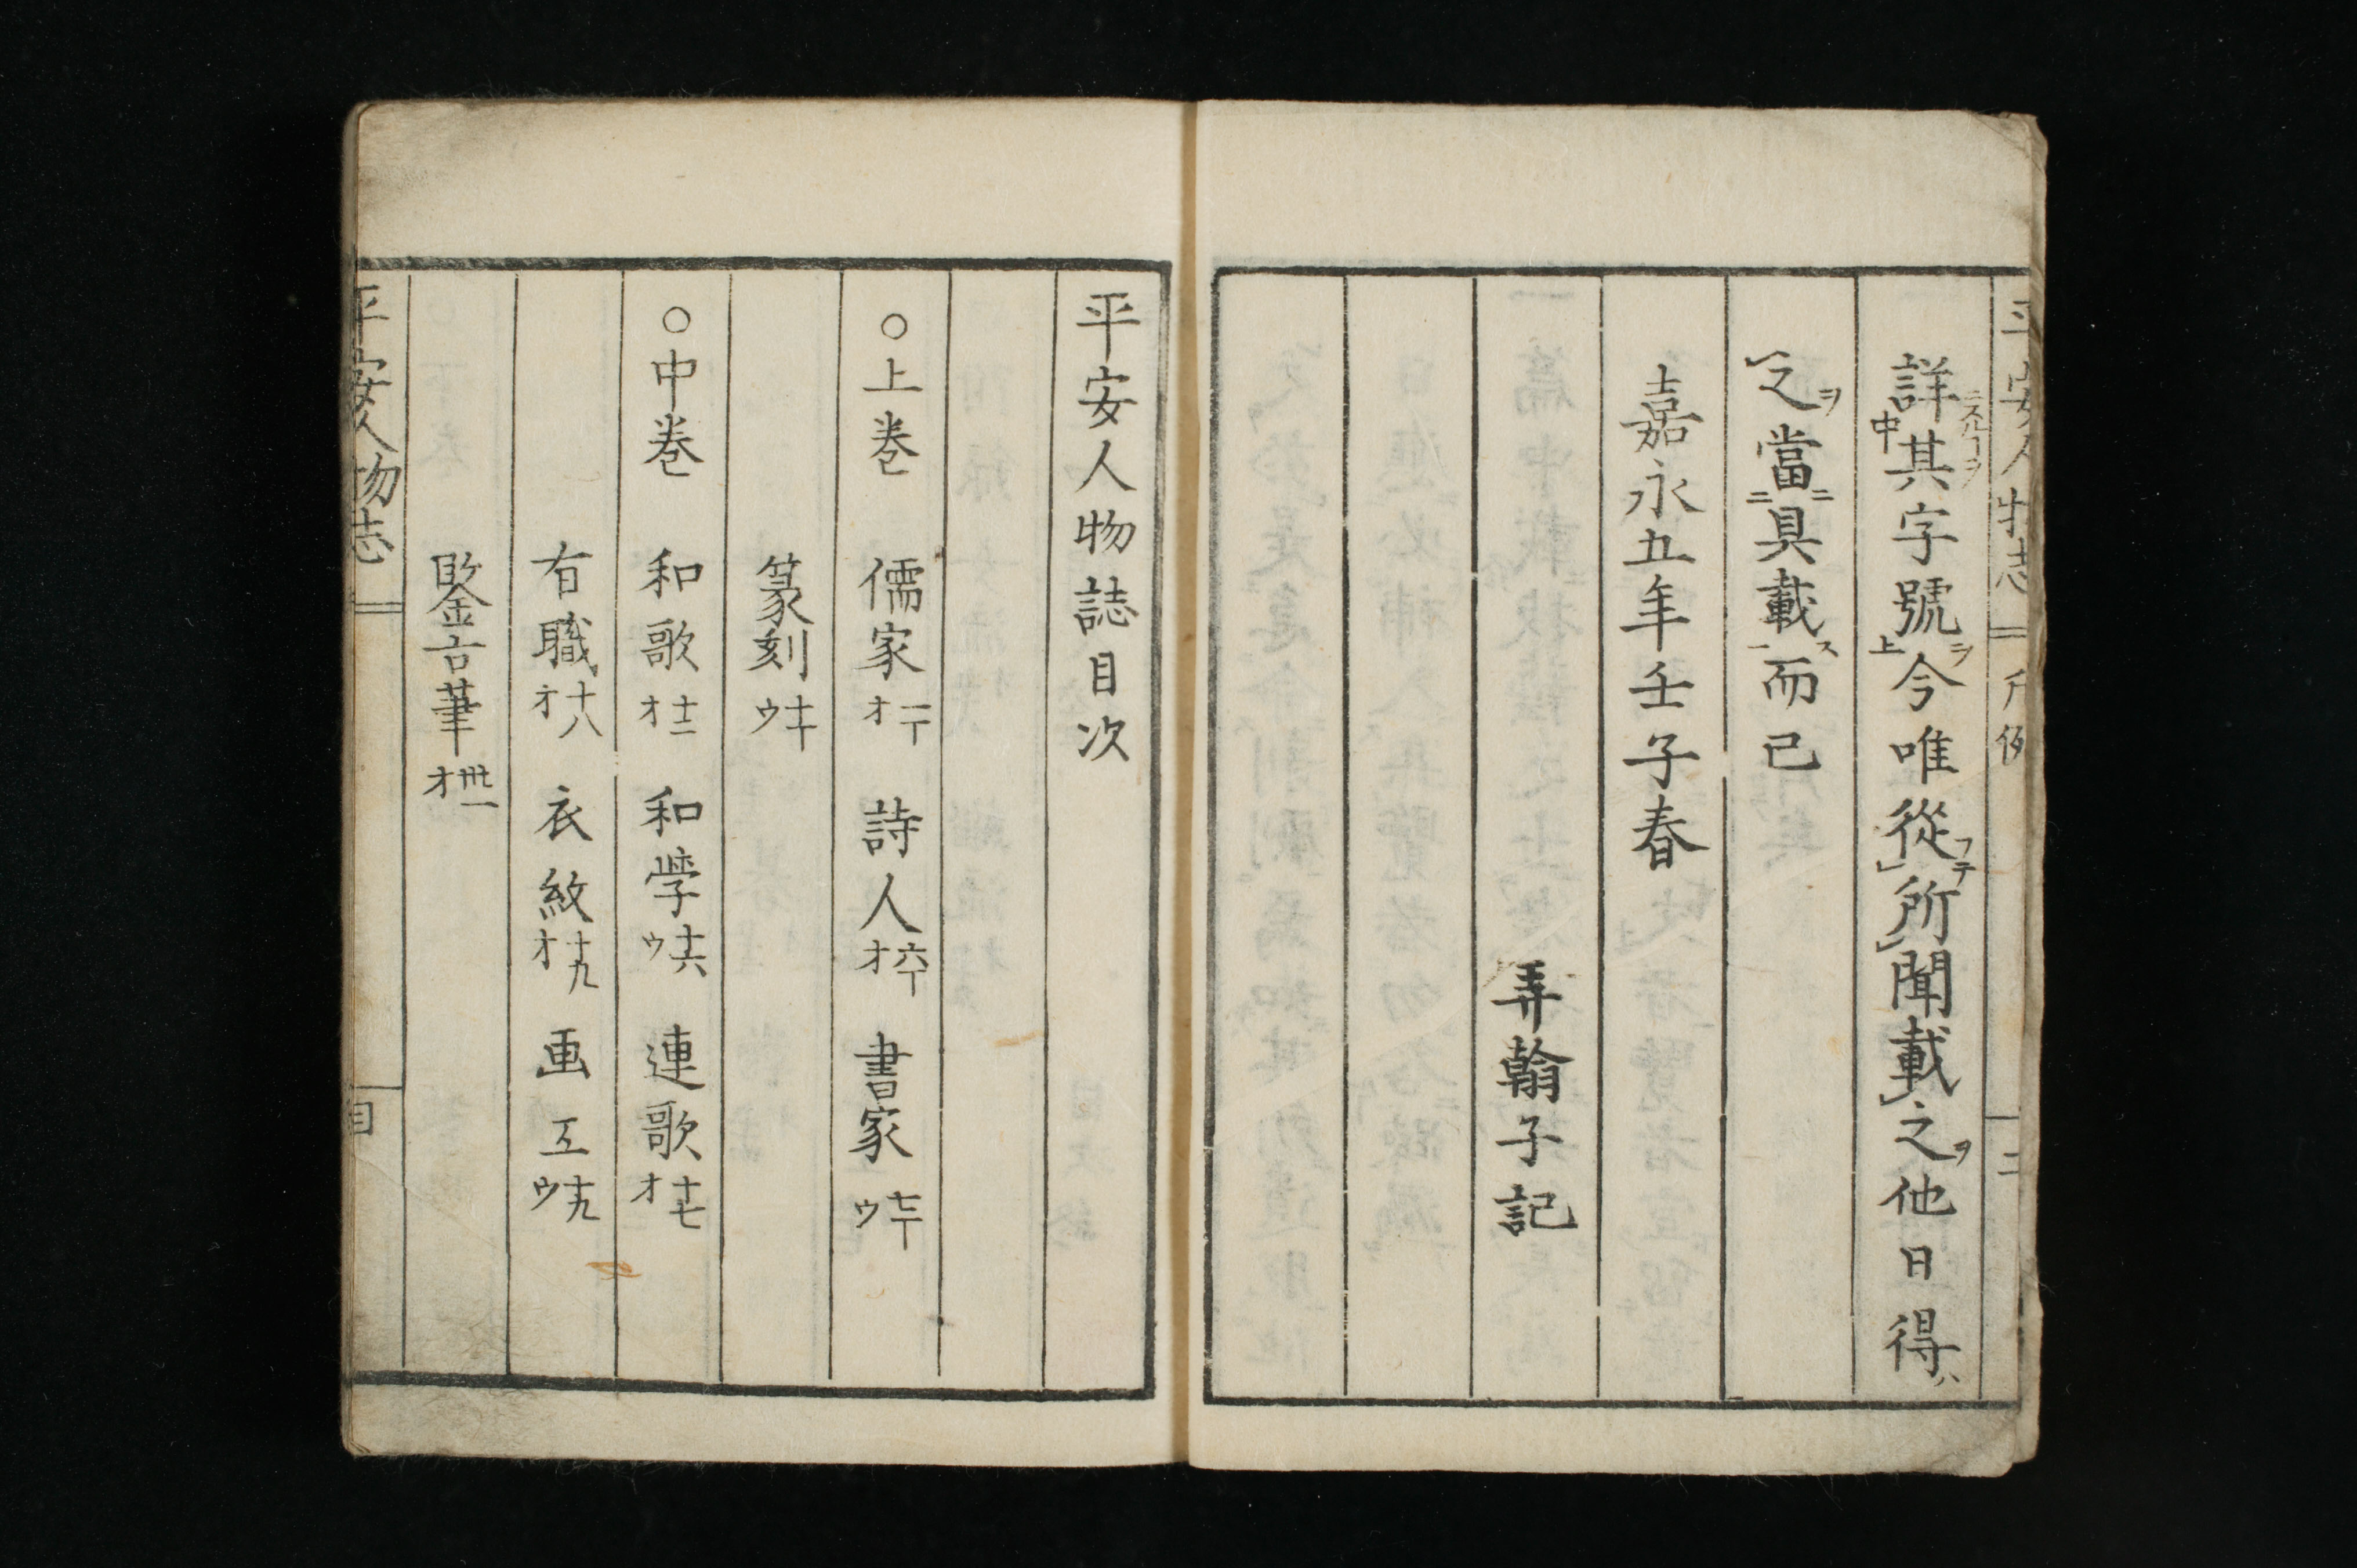 詳其字號今唯從所聞載之他日得
之當具載而已
嘉永五年壬子春
弄翰子記
平安人物誌目次
○上巻 儒家 オ一丁 詩人 オ六丁 書家 ウ七丁
篆刻 ウ十丁
○中巻 和歌 オ十二 和學 ウ十六 連歌 オ十七
有職 オ十八 衣紋 オ十九 画工 ウ十九
鑒古筆 オ卅一
平安人物志 目